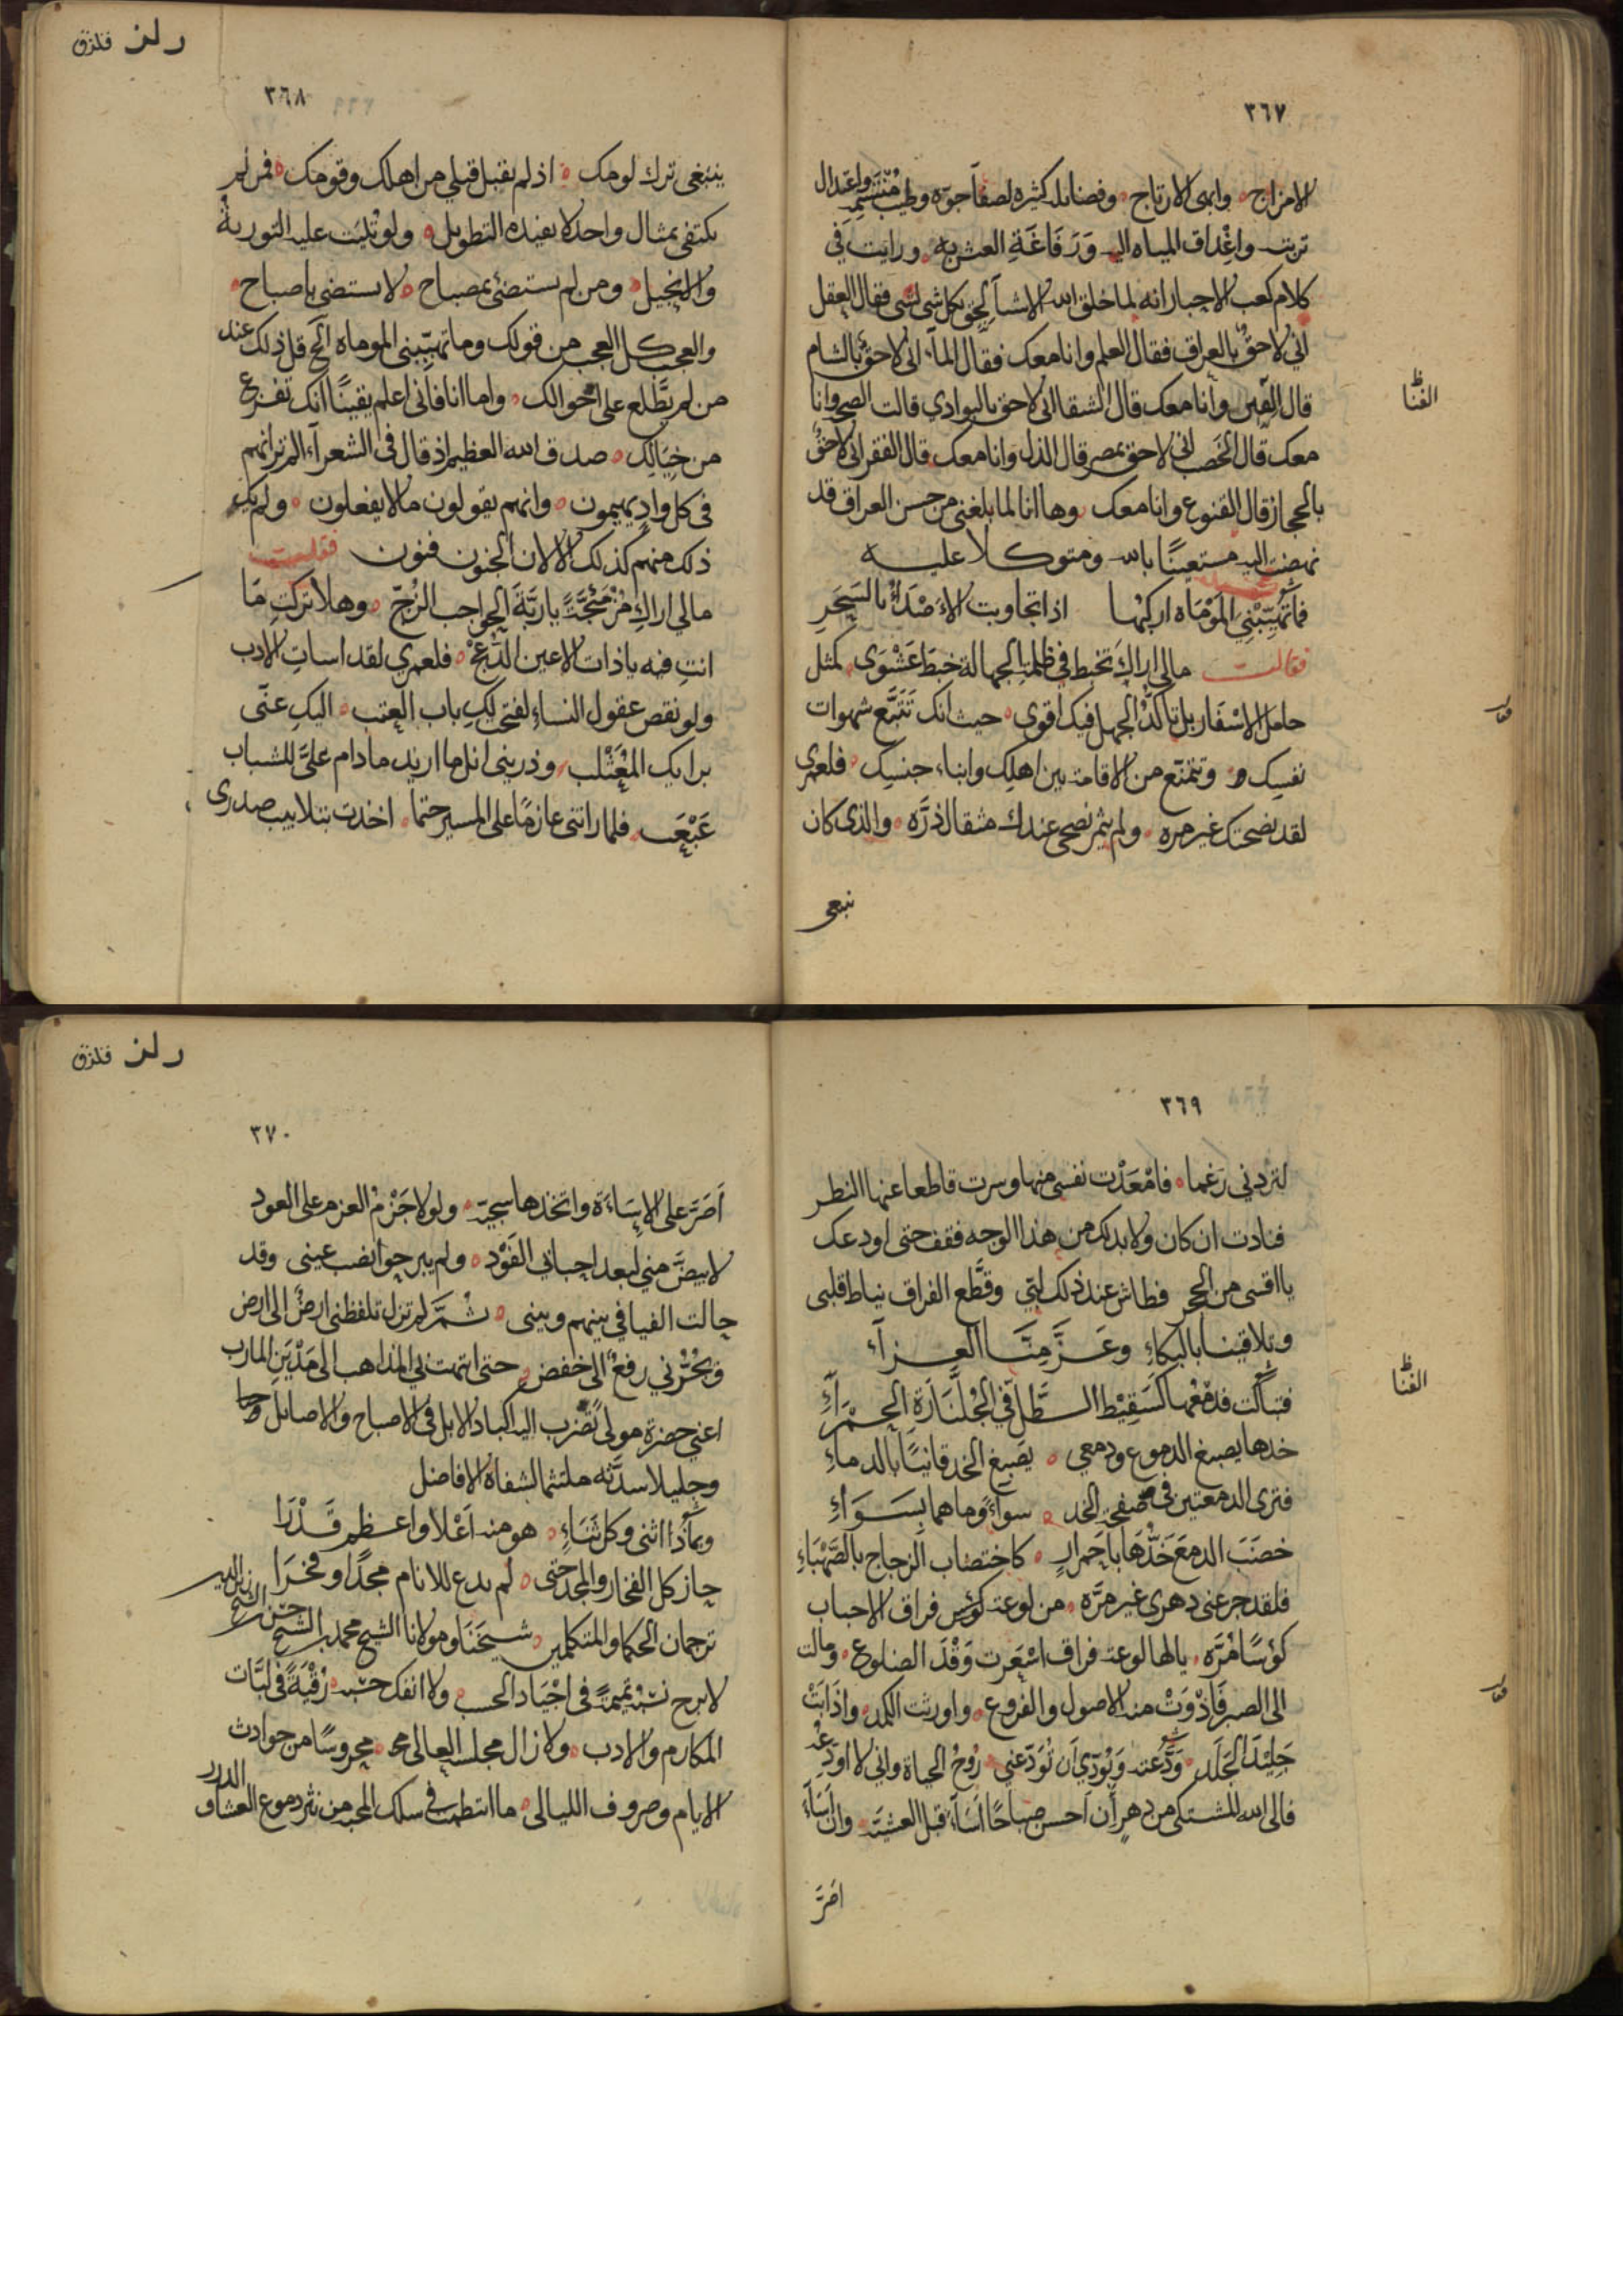 ٣٦٧
الامزاج وابهى الارتاج وفضائله كثيره لصفآ جوّه وطيب منتسم واعتدال
تربته واغداق المياه اليه وَرَفَاغَةِ العيش به ورايت في
كلام كعب الاحبار انه لما خلق الله الاشيآ لحق كل شي لشي فقال العقل
اني لاحقٌ بالعراق فقال العلم وانا معك فقال المآ اني لاحقٌ بالشام
قال الفتن وأنا معك قال الشقا اني لاحق بالبوادي قالت الصحه وانا
معك قال الخصب اني لاحق بمصر قال الذل وانا معك قال الفقر اني لاحقٌ
بالحجاز قال القنوع وانا معك وها انا لما بلغني من حسن العراق قد
نهضت اليه مستعينًا بالله ومتوكلا عليه
فما تهيّبْنِي المَوْمَاه اركبها اذا تجاوبت الاَصْدَآءُ بالسَحَرِ
فقالت مالي اراكَ تخبط في ظلمة الجهالة خبط عَشْوَى كمثل
حامل الاسْفَار بل تاكدُ الجهل فيك اقوى حيث انك تَتَبَّع شهوات
نفسِك وتمتنع من الاقامة بين اهلِك وابناء جنسِك فلعمرى
لقد نصحتك غير مره ولم يثمر نصحى عندك مثقال ذرَّه والذى كان
ينبغى
٣٦٨
رلز فلزق
ينبغى ترك لومك اذ لم يقبل قبلي من اهلك وقومك فمن لم
يكتفى بمثال واحد لا يفيده التطويل ولو تُلِيَت عليه التورية
والانجيل ومن لم يستضئ بمصباح لا يستضى باصباح
والعجب كل العجب من قولك وما تهيّبنى الموماه الخ قل ذلك عند
من لم يطّلع على احوالك واما انا فانى اعلم يقينًا انك تفزع
من خيَالِك صدق الله العظيم اذ قال فى الشعرآء الم تر انهم
فى كل وادٍ يهيمون وانهم يقولون ما لا يفعلون ولم يك
ذلك منهم كذلك الا لان الجنون فنون فقلت
مالي اراكِ مُزْعَجَّةً يا ربَّةَ الحواجب الزُجّ وهلا تركتِ مَا
انتِ فيه ياذات الاعين الدُّعجْ فلعمري لقد اساتِ الادب
ولو نقص عقول النساء لفتح لكِ باب العتب اليكِ عنّى
برايك المغَثْلب وذرينى انل ما اريد مادام علىَّ للشباب
عَبْعَب فلما راتنى عازمًا على المسير حتمًا اخذت بتلابيب صدرى
٣٦٩
الفنا
لتردني رَغما فامْعَدْت نفسى منها وسرت قاطعا عنها النظر
فنادت ان كان ولا بد لك من هذا الوجه فقف حتى اودعك
يا اقسى من الحجر فطاش عند ذلك لبّي وقطّع الفراق نياط قلبى
وتلاقينا بالبكاءِ وعَزَّ مِنَّا العزآء
فتباكت فدمْعُها كسَقِيْط الطّلّ في الجُلّنَارَةِ الحمْرَآءِ
خدها يصبغ الدموع ودمعي يَصبغ الخد قانيًا بالدماءِ
فترى الدمعتين في صفحة الخد سواءً وما هما بِسَوَاءِ
خضَبَ الدمعَ خَدُّهَا بِاحمرارٍ كاختضاب الزجاج بالصَّهْبَاءِ
فلقد جرعنى دهرى غير مرَّه من لوعة كؤس فراق الاحباب
كؤسًا مُرَّه يالها لوعة فراق اسْعَرت وَقْدَ الضلوع ومالت
الى الصبر فَاذْوَتْ منه الاصول والفروع واورثت الكمد واذَابَتْ
جَلِيْدَ الجَلَد وَدَّعته وبُودّي اَن تُوَدّعني رُوحُ الحياة واني لا اودّعُه
فالى الله المشتكى من دهرٍ أن احسن صباحًا اسَآءَ قبل العشيّة وان اسَآءَ
اصَرَّ
٣٧٠
رلز فلزق
اَصَرَّ على الاِسَاءَة واتخذها سجيّه ولولا جَزْمُ العزم على العود
لابيضَّ مني لبعد احبابي الفَوْد ولم يبرحوا نصب عينى وقد
حالت الفيافي بينهم وبينى ثمَّ لم تزل تلفظنى ارضٌ الى ارض
ويجُرُّني رفعٌ الى خفض حتى انتهت بي المذاهب الى مَدْيَنِ المارب
اعني حضرة مولى تُضرب اليه اكباد الابل في الاصباح والاصائل
وجليلا سدَّته ملتثم الشفاه الافاضل
وبماذا اثنى وكل ثَنَاءٍ هو منه اَعْلا واعظم قَدْرَا
حاز كل الفخار والمجد حتى لم يدع للانام مجْدًا وفخْرَا
ترجمان الحكما والمتكلمين شيخنَا ومولانا الشيخ محمد بن الشيخ حسن بن الشيخ زين الدين
لابرح تميمةً في اجْيَاد الحسب ولا انفك رُقْيَةً في لبَّات
المكارم والادب ولا زال مجلسه العالى محروسًا من حوادث
الايام وصروف الليالى ما انتظمت في سلك المحبة من نثر دموع العشاق الدرر